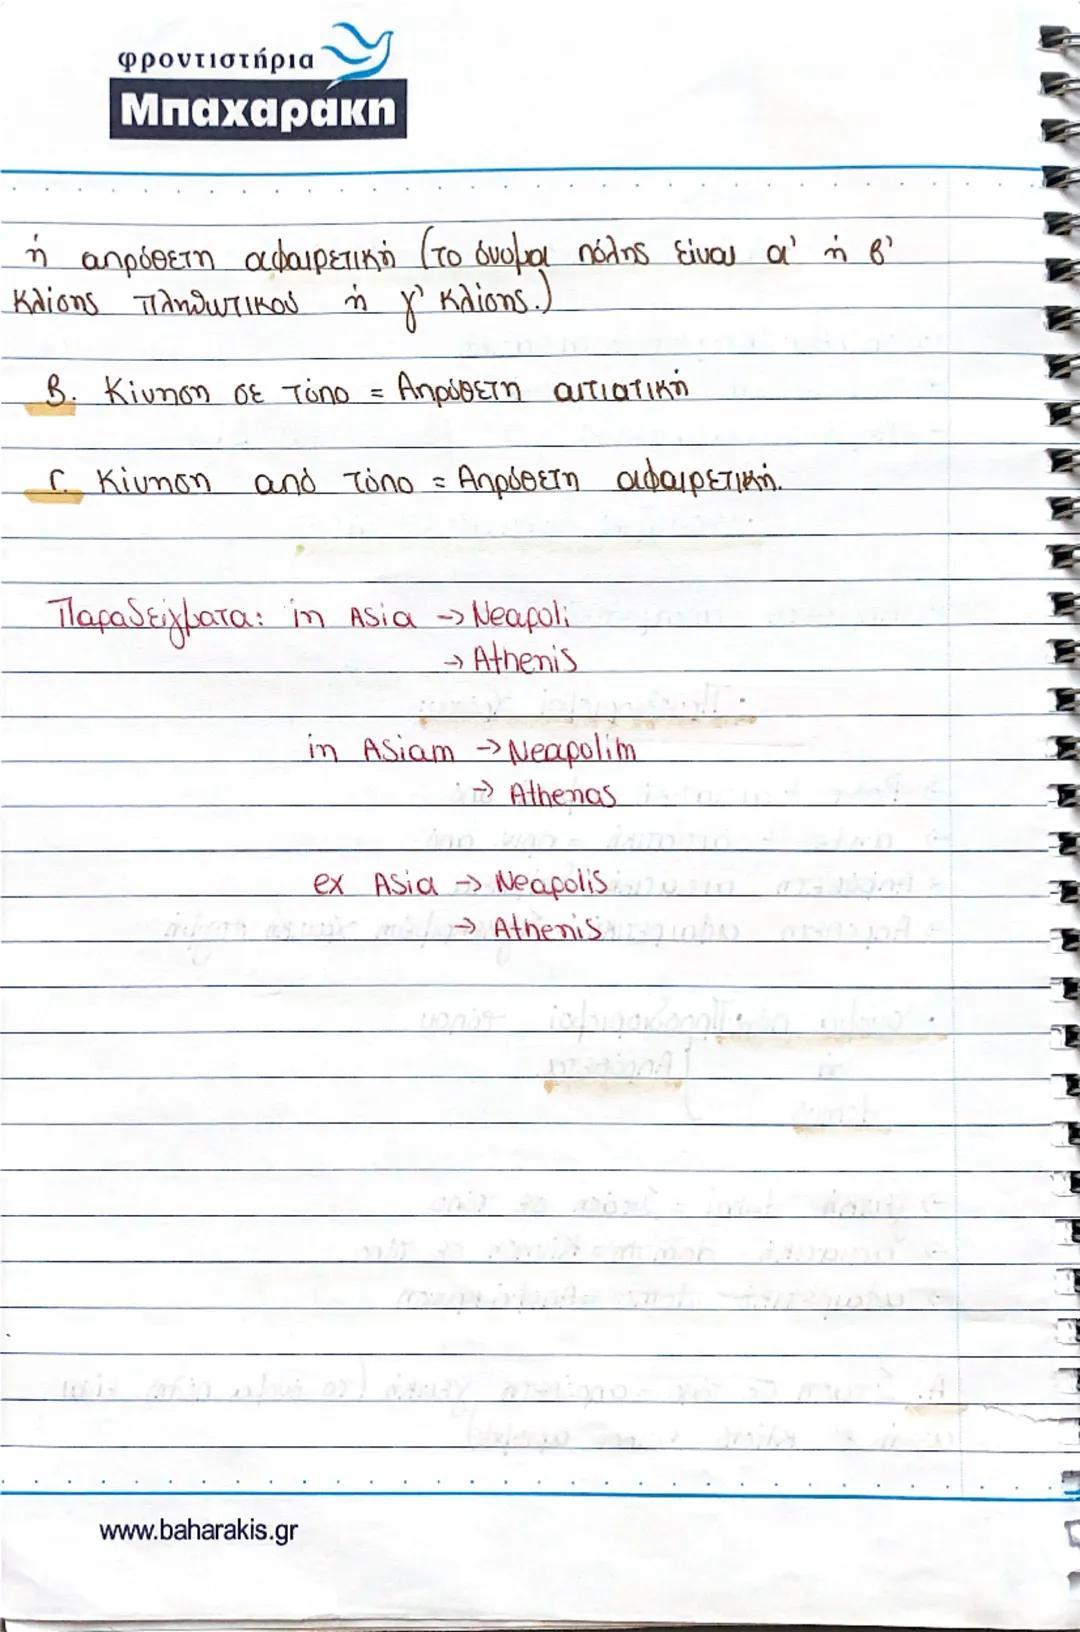 φροντιστήρια
Μπαχαράκη
ή απρόθετη αφαιρετική (το όνομα πόλης είναι α' ή β'
κλίσης πληθυντικού ή γ' κλίσης.)
Β. Κίνηση σε τόπο = Απρόθετη αιτιατική
Γ. Κίνηση από τόπο = Απρόθετη αφαιρετική.
Παραδείγματα: in Asia → Neapoli
→ Athenis
in Asiam → Neapolim
→ Athenas
ex Asia → Neapolis
→ Athenis
www.baharakis.gr